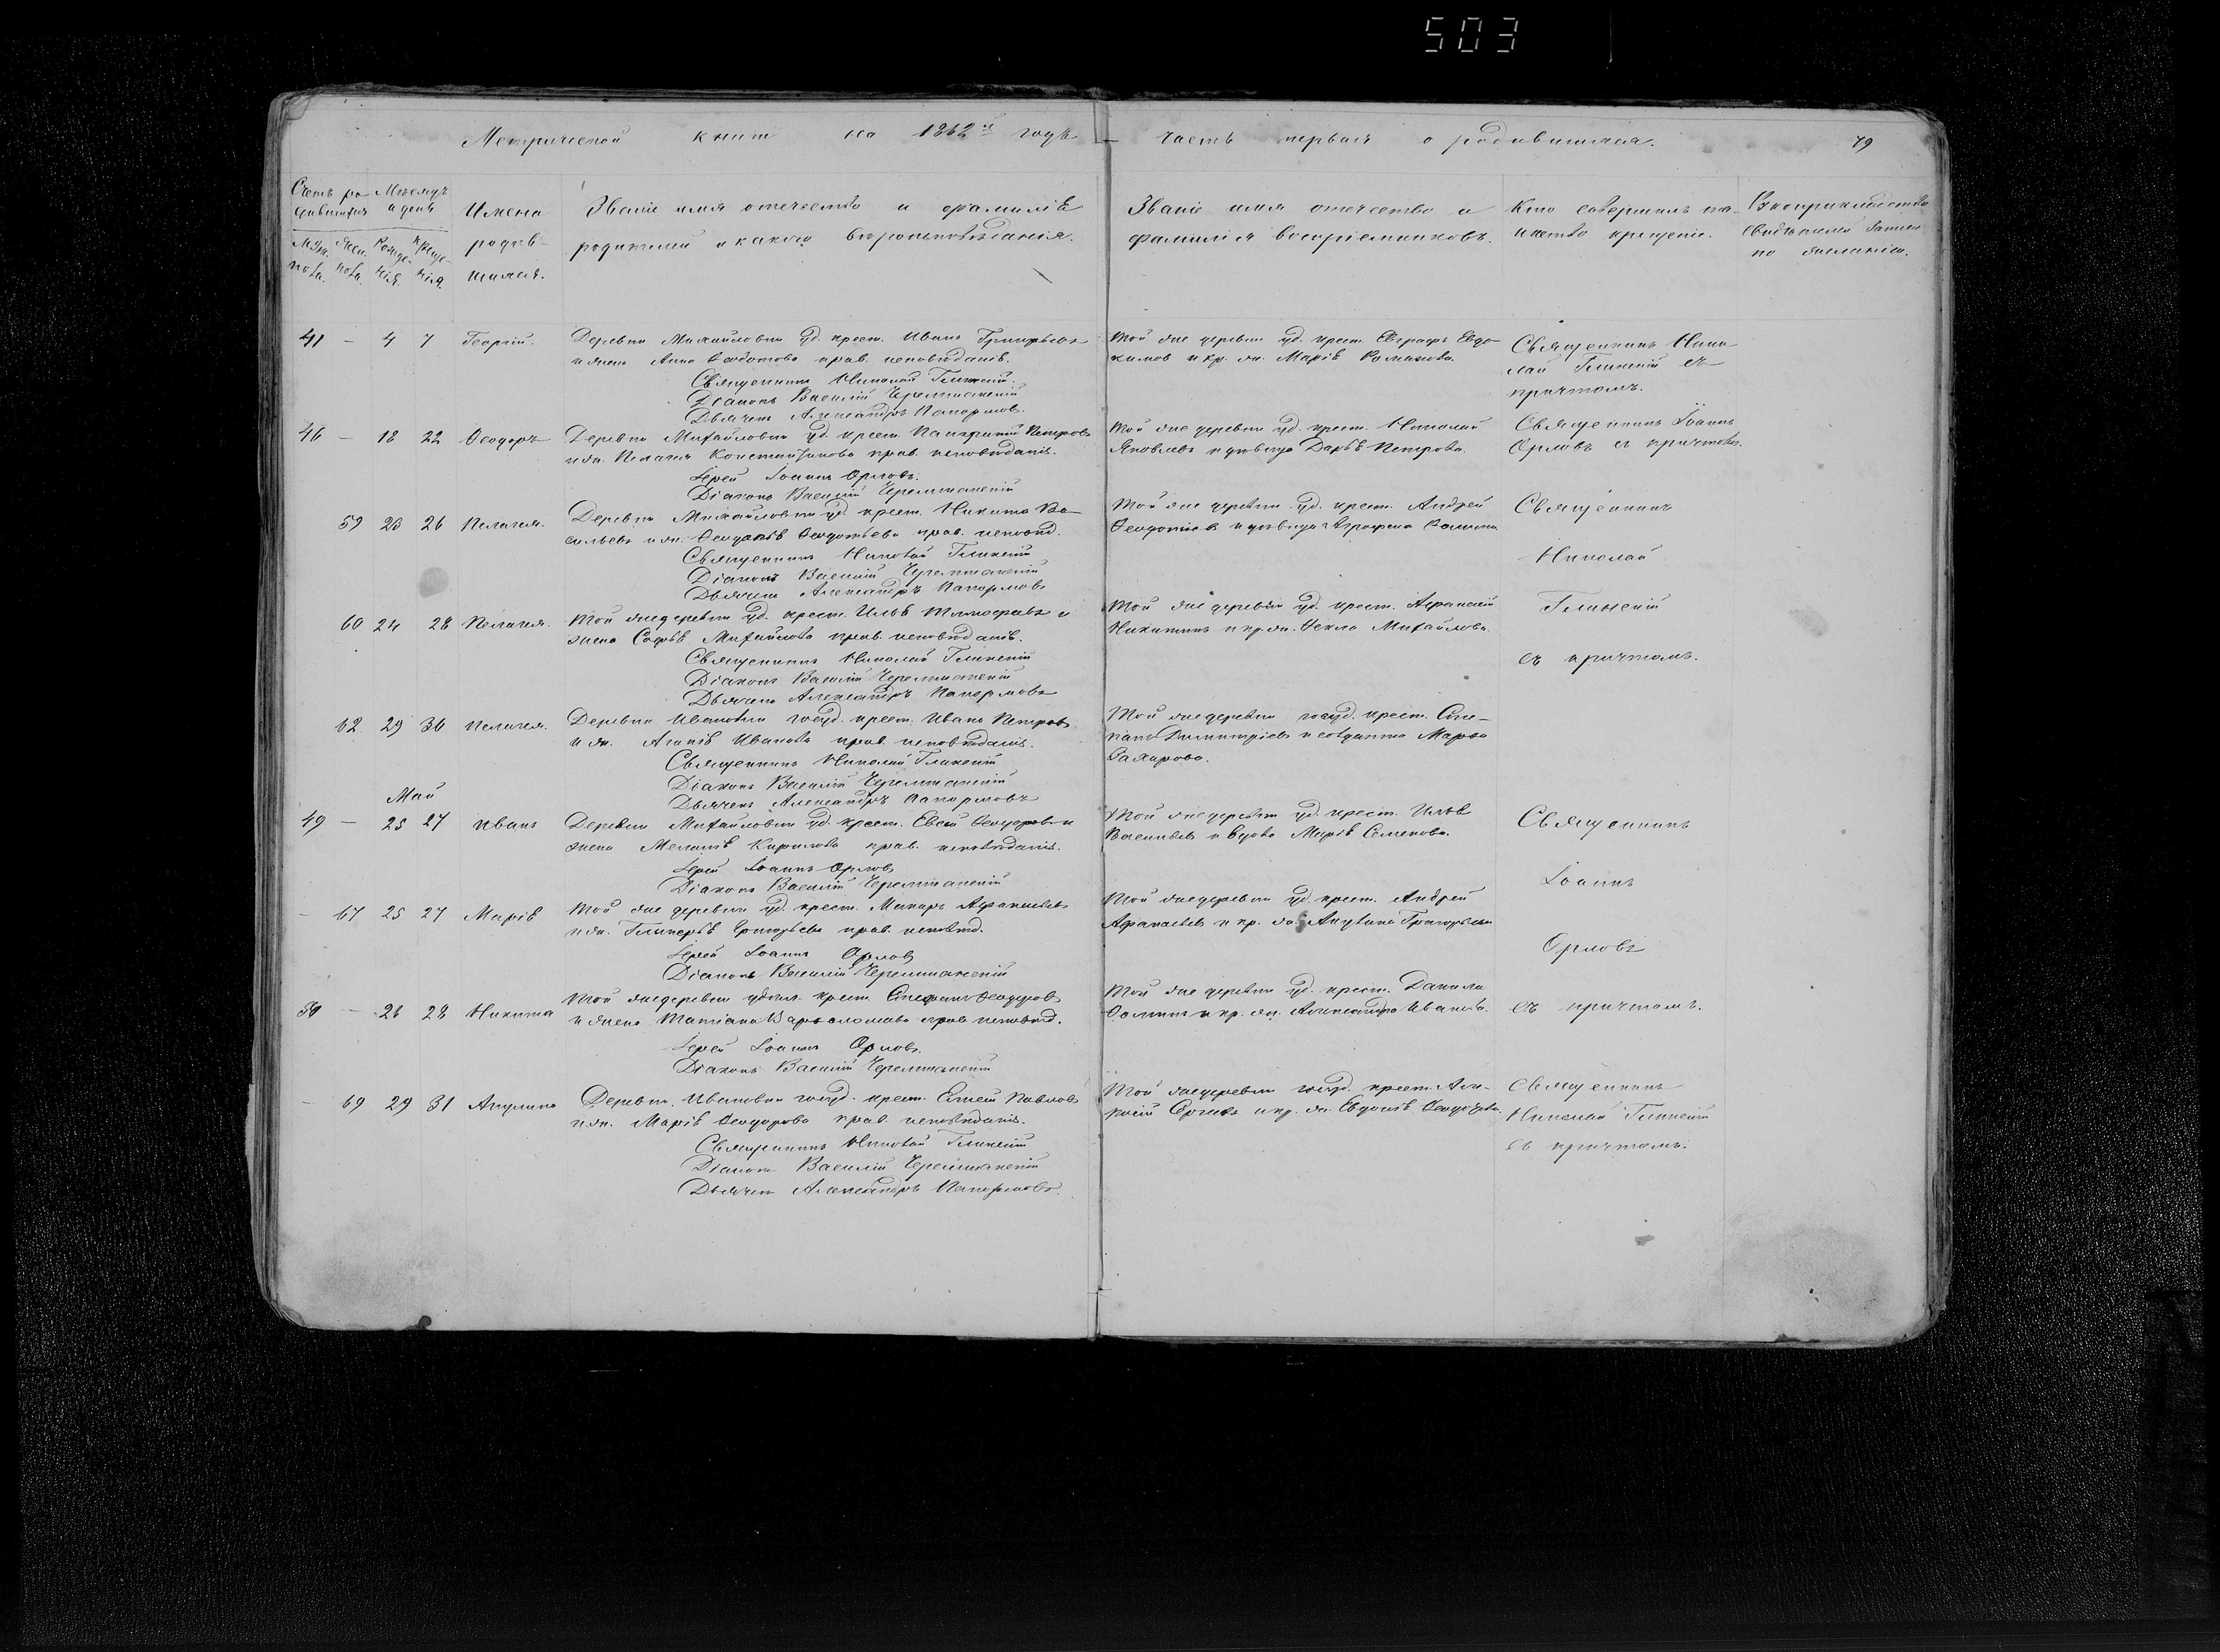 503
Метрической книги на 1862й годъ часть первая о родившихся. 79
Счетъ ро дившихся
Мѣсяцъ и день
Имена родив- шихся.
Званіе имя отечество и фамилія
родителей и какого вѣроисповѣданія.
Званіе имя отечество и
фамилія воспріемниковъ.
Кто совершилъ та-
инство крещенія.
Рукоприкладство
свидѣтелей записи
по желанію.
41 — 4 7 Георгій. Деревни Михайловки уд. крест. Иванъ Григорьевъ
и жена Анна Ѳедотова прав. исповѣданія.
Священникъ Николай Глинскій.
Діаконъ Василій Черемшанскій
Дьячекъ Александръ Папормовъ.
Той же деревни уд. крест. Евграфъ Евдо-
кимов и кр. ж. Марія Романова.
Священникъ Нико
лай Глинскій съ
причтомъ.
46 — 18 22 Ѳеодоръ Деревни Михайловки уд. крест. Панкратій Петровъ
и ж. Пелагея Константинова прав. исповѣданія.
Іерей Іоаннъ Орловъ.
Діаконъ Василій Черемшанскій
Той же деревни уд. крест. Николай
Яковлевъ и дѣвица Дарья Петрова.
Священникъ Іоаннъ
Орловъ съ причтомъ.
59 23 26 Пелагея. Деревни Михайловки уд. крест. Никита Ва-
сильевъ и ж. Ѳеодосія Ѳеодотьева прав. исповѣд.
Священникъ Николай Глинскій
Діаконъ Василій Черемшанскій
Дьячекъ Александръ Папормовъ
Той же деревни уд. крест. Андрей
и дѣвица Аграфена
Священникъ
Николай
Глинскій
съ причтомъ.
60 24 28 Пелагея. Той же деревни уд. крест. Илья Тимофеевъ и
жена Софья Михайлова прав. исповѣданія.
Священникъ Николай Глинскій
Діаконъ Василій Черемшанскій
Дьячекъ Александръ Папормовъ
Той же деревни уд. крест. Афанасій
Никитинъ и кр. ж. Ѳекла Михайлова.
62 29 30 Пелагея. Деревни Ивановки госуд. крест. Иванъ Петровъ
и ж. Агапія Иванова прав. исповѣданія.
Священникъ Николай Глинскій
Діаконъ Василій Черемшанскій
Дьячекъ Александръ Папормовъ
Той же деревни госуд. крест. Сте-
панъ Димитріевъ и солдатка Марѳа
Захарова.
Май
49 — 25 27 Иванъ Деревни Михайловки уд. крест. Евсей Ѳеодоровъ и
жена Меланія Кирилова прав. исповѣданія.
Іерей Іоаннъ Орловъ
Діаконъ Василій Черемшанскій
Той же деревни уд. крест. Илья
Васильевъ и вдова Марія Семенова.
Священникъ
Іоаннъ
Орловъ
съ причтомъ.
— 67 25 27 Марія Той же деревни уд. крест. Макаръ Афанасьевъ
и ж. Гликерья Григорьева прав. исповѣд.
Іерей Іоаннъ Орловъ
Діаконъ Василій Черемшанскій
Той же деревни уд. крест. Андрей
Афанасьевъ и кр. ж. Григорьева
— 26 28 Никита Той же деревни удѣл. крест. Стефанъ Ѳеодоровъ
и жена Татіана Варѳоломеева прав. исповѣд.
Іерей Іоаннъ Орловъ.
Діаконъ Василій Черемшанскій
Той же деревни уд. крест. Данила
Ѳоминъ и кр. ж. Александра Иванова.
— 69 29 31 Акулина Деревни Ивановки госуд. крест. Елисей Павловъ
и ж. Марія Ѳеодорова прав. исповѣданія.
Священникъ Николай Глинскій
Діаконъ Василій Черемшанскій
Дьячекъ Александръ Папормовъ.
Той же деревни госуд. крест. Але-
ксѣй Сергѣевъ и кр. ж. Евдокія Ѳеодорова.
Священникъ
Николай Глинскій
съ причтомъ.